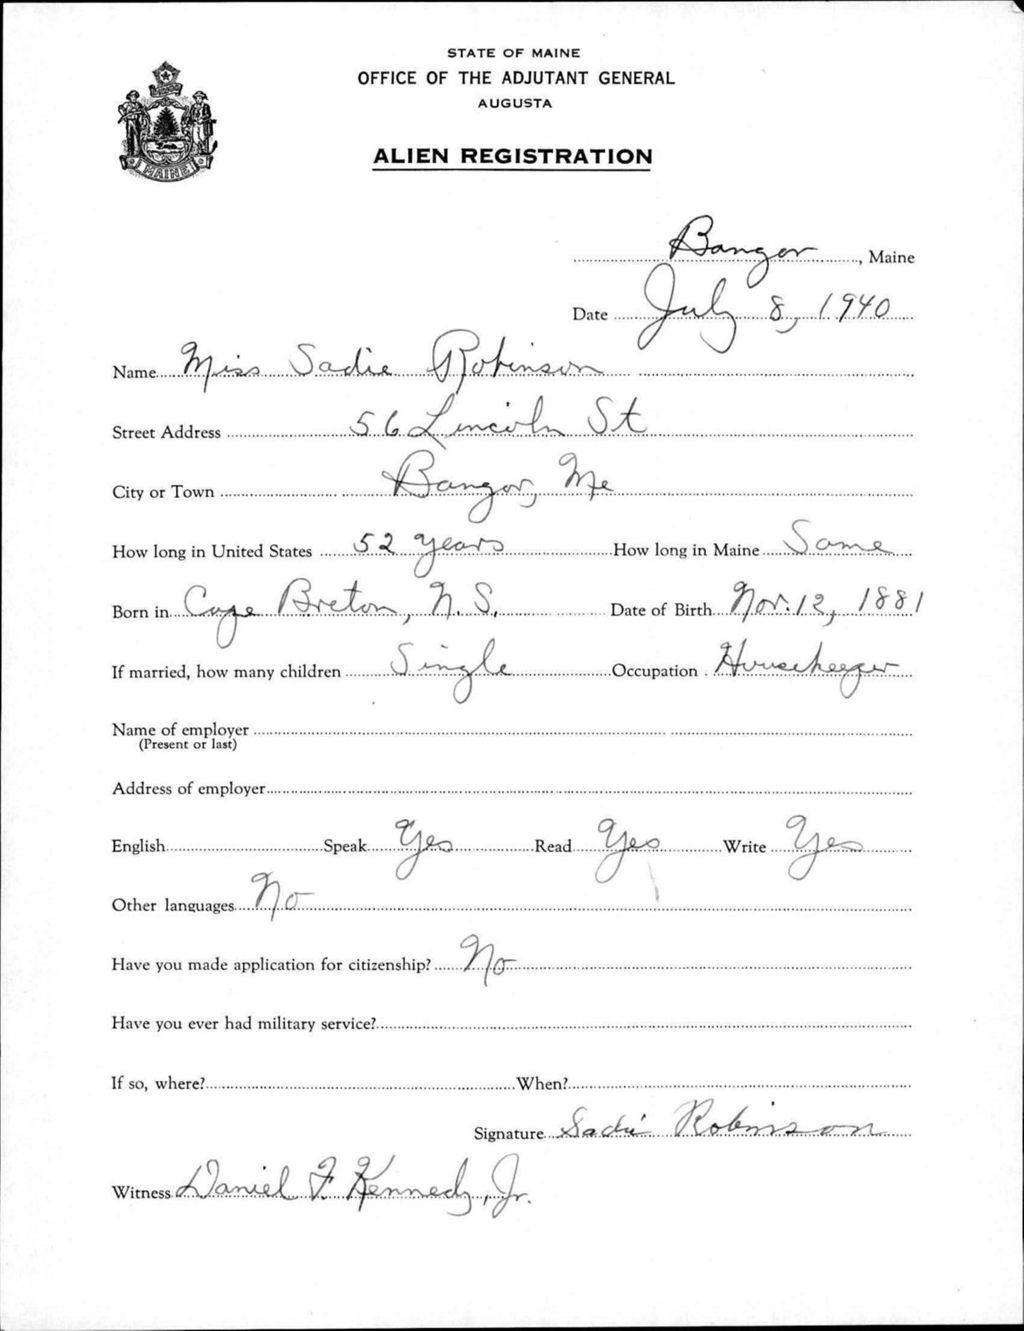 STATE OF MAINE
OFFICE OF THE ADJUTANT GENERAL
AUGUSTA
ALIEN REGISTRATION
MAINE
Bangor, Maine
Date July 8, 1940
Name Miss Sadie Robinson
Street Address 56 Lincoln St
City or Town Bangor, Me
How long in United States 52 years How long in Maine Same
Born in Cape Breton, N. S. Date of Birth Nov. 12, 1881
If married, how many children Single Occupation Housekeeper
Name of employer
(Present or last)
Address of employer
English Speak Yes Read Yes Write Yes
Other languages No
Have you made application for citizenship? No
Have you ever had military service?
If so, where? When?
Signature Sadie Robinson
Witness Daniel F. Kennedy, Jr.